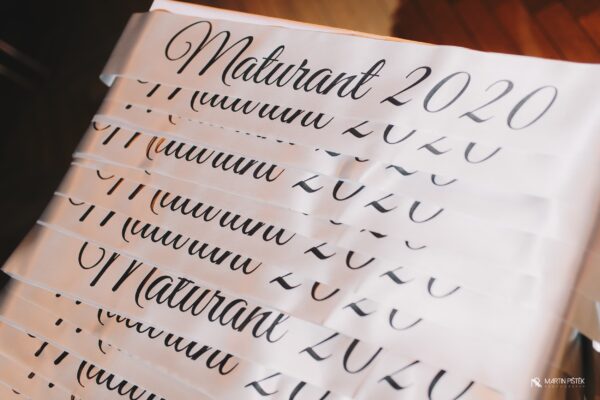 Maturant 2020
Maturant 2020
Maturant 2020
Maturant 2020
Maturant 2020
Maturant 2020
Maturant 2020
Maturant 2020
MARTIN PIŠTĚK
PHOTOGRAPHY